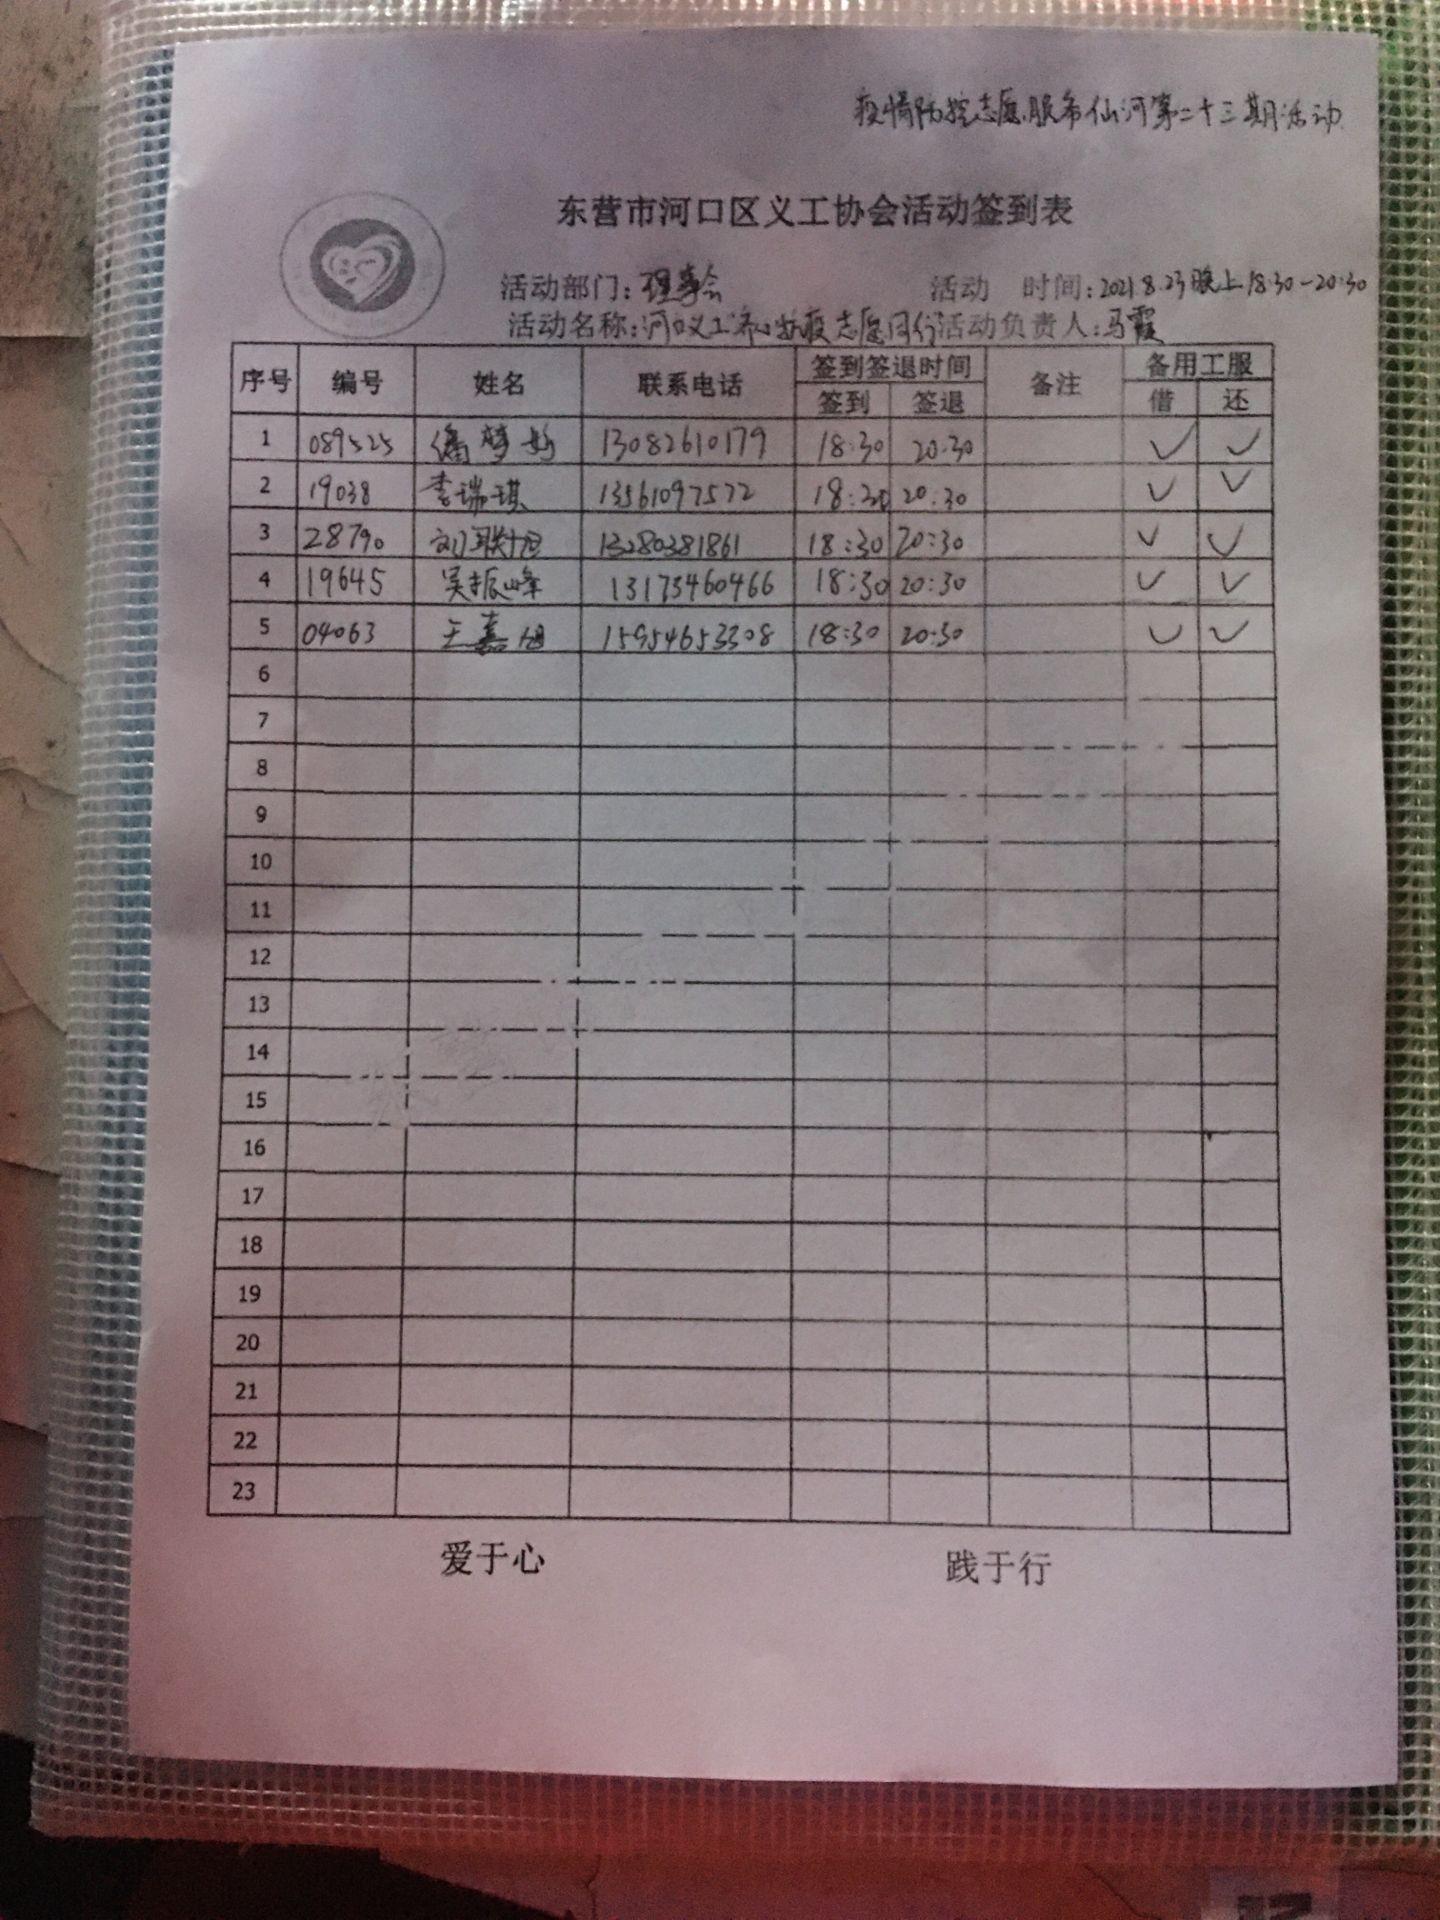 疫情防控志愿服务仙河第二十三期活动
东营市河口区义工协会活动签到表
活动部门：理事会 活动 时间：2021 8.23晚上18:30-20:30
活动名称：河口义工 志愿同行 活动负责人：马霞
序号 编号 姓名 联系电话 签到签退时间 备注 备用工服
签到 签退 借 还
1 089525 潘梦 13082610179 18:30 20:30 ✓ ✓
2 19038 李瑞琪 13561097572 18:30 20:30 ✓ ✓
3 28790 刘联旭 13280381861 18:30 20:30 ✓ ✓
4 19645 吴振峰 13173460466 18:30 20:30 ✓ ✓
5 04063 王嘉旭 15954653308 18:30 20:30 ✓ ✓
6
7
8
9
10
11
12
13
14
15
16
17
18
19
20
21
22
23
爱于心 践于行